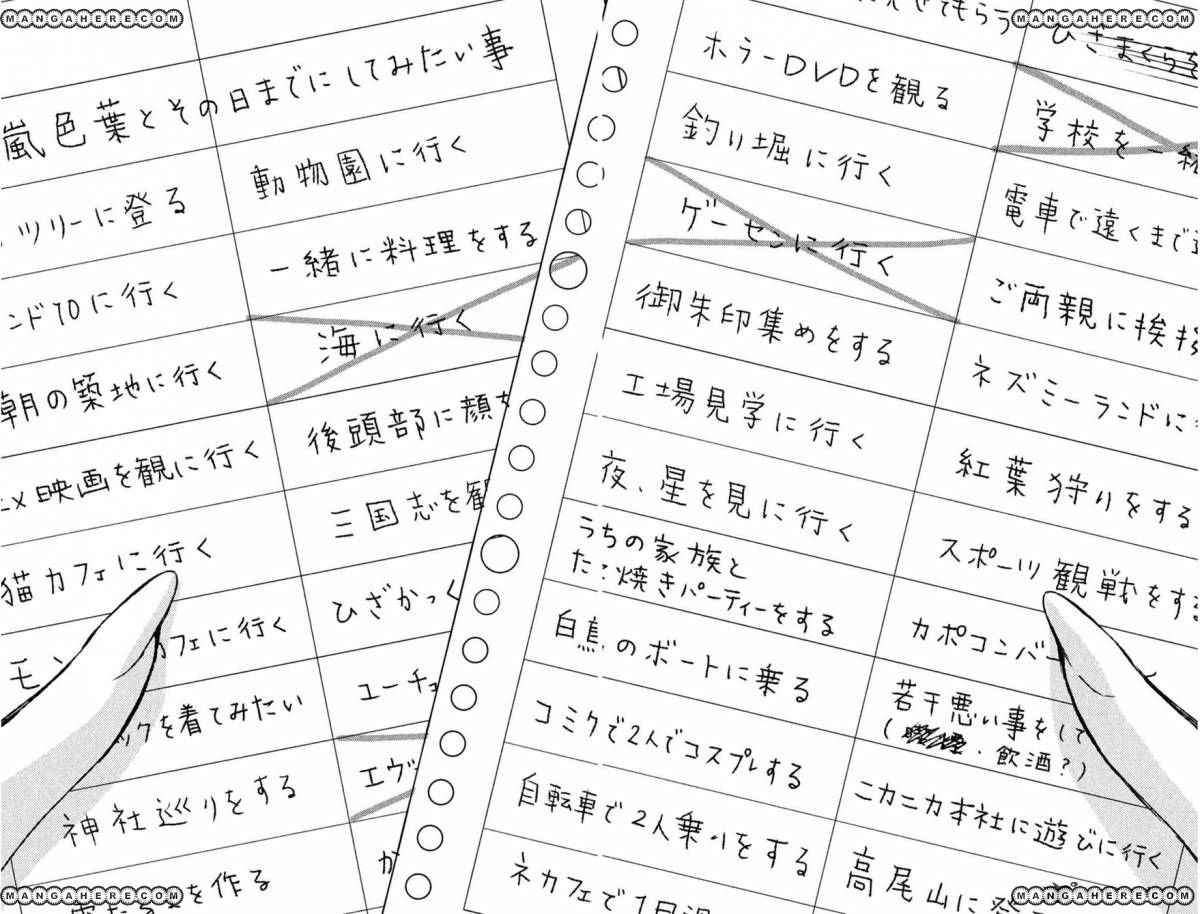 MANGAHERE.COM
MANGAHERE.COM
嵐色葉とその日までにしてみたい事
ツリーに登る
ンド10に行く
朝の築地に行く
映画を観に行く
猫カフェに行く
モン
カフェに行く
ックを着てみたい
神社巡りをする
を作る
動物園に行く
一緒に料理をする
海に行く
後頭部に顔を
三国志を観
ひざかっく
ユーチュ
エヴ
か
てもらう
ホラーDVDを観る
釣り堀に行く
ゲーセンに行く
御朱印集めをする
工場見学に行く
夜、星を見に行く
うちの家族と
たこ焼きパーティーをする
白鳥のボートに乗る
コミケで2人でコスプレする
自転車で2人乗りをする
ネカフェで1日
ひざまくらを
学校を一緒
電車で遠くまで
ご両親に挨拶
ネズミーランドに
紅葉狩りをする
スポーツ観戦をする
カポコンバー
若干悪い事をして
(・飲酒?)
ニカニカ本社に遊びに行く
高尾山に登
MANGAHERE.COM
MANGAHERE.COM